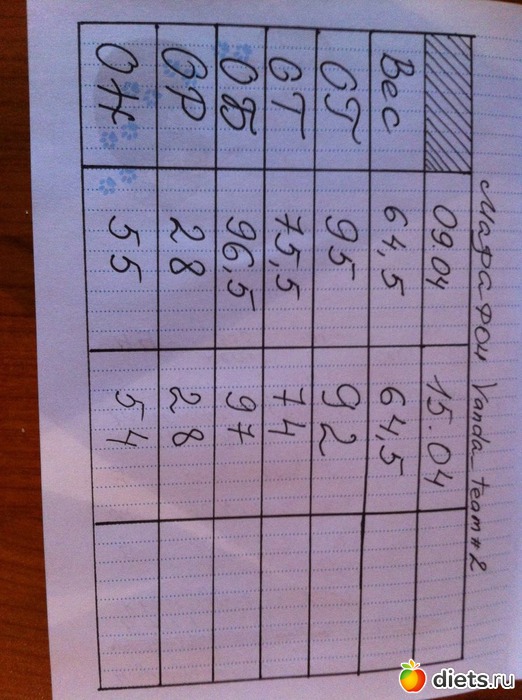 Марафон Vanda_team#2
09.04 15.04
Вес 64,5 64,5
ОГ 95 92
ОТ 75,5 74
ОБ 96,5 97
ОР 28 28
ОН 55 54
diets.ru